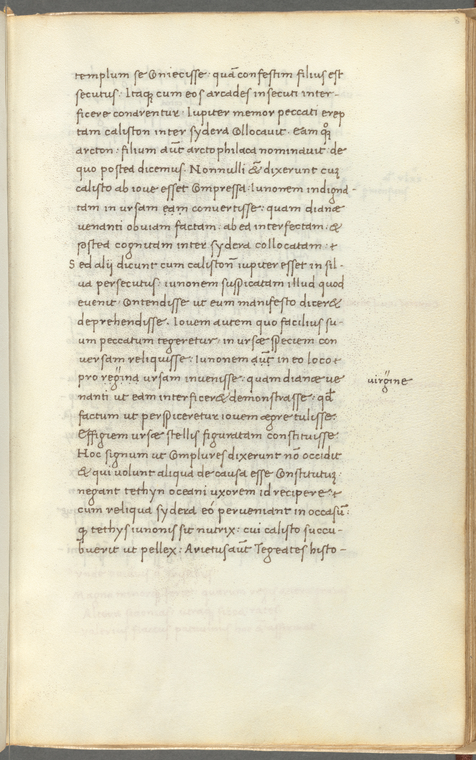 templum se Coniecisse: quā confestim filius est
secutus. Itaq; cum eos arcades insecuti inter-
ficere conarentur. Iupiter memor peccati erep
tam caliston inter sydera Collocauit. Eam q̊;
arcton: filium aūt arctophilaca nominauit: de
quo postea dicemus. Nonnulli & dixerunt cuƺ
calisto ab ioue esset Compressa: Iunonem indigna-
tam in ursam eam conuertisse: quam dianæ
uenanti obuiam factam: ab ea interfectam: &
postea cognitam inter sydera collocatam: &
Sed alij dicunt cum calistoñ iupiter esset in sil-
ua persecutus: iunonem suspicatam illud quod
euenit Contendisse ut eum manifesto dicer&
deprehendisse. Iouem autem quo facilius su-
um peccatum tegeretur: in ursæ speciem con
uersam reliquisse: Iunonem aūt in eo loco
pro regina ursam inuenisse: quam dianæ ue
nanti ut eam interficer& demonstrasse: qđ
factum ut perspiceretur iouem ægre tulisse:
Effigiem ursæ stellis figuratam constituisse:
Hoc signum ut Complures dixerunt nō occidit
& qui uolunt aliqua de causa esse Constitutuƺ
negant tethyn oceani uxorem id recipere:
cum reliqua sydera eó perueniant in occasū:
q; tethys iunonis sit nutrix: cui calisto succu-
buerit ut pellex: Arietus aūt Tegeates histo-
uirgine